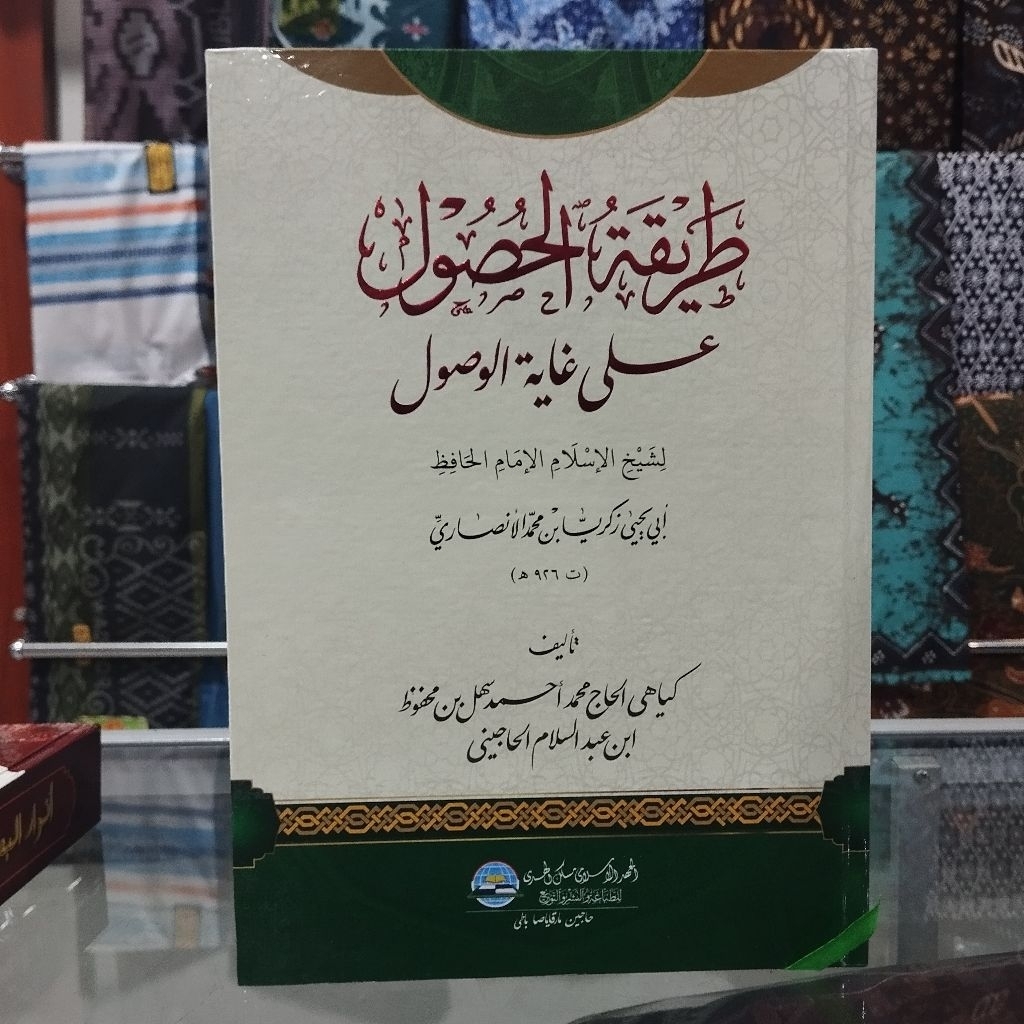 طَرِيْقَةُ الحُصُوْلِ
على غاية الوصول
لِشَيْخِ الإِسْلَامِ الإِمَامِ الحَافِظِ
أبي يحيى زكريا بن محمد الأنصاريّ
(ت ٩٢٦ ه)
تأليف
كياهي الحاج محمد أحمد سهل بن محفوظ
ابن عبد السلام الحاجيني
المعهد الإسلامى مسلك الهدى
للطباعة والنشر والتوزيع
حاجين مارقاياصا باطى